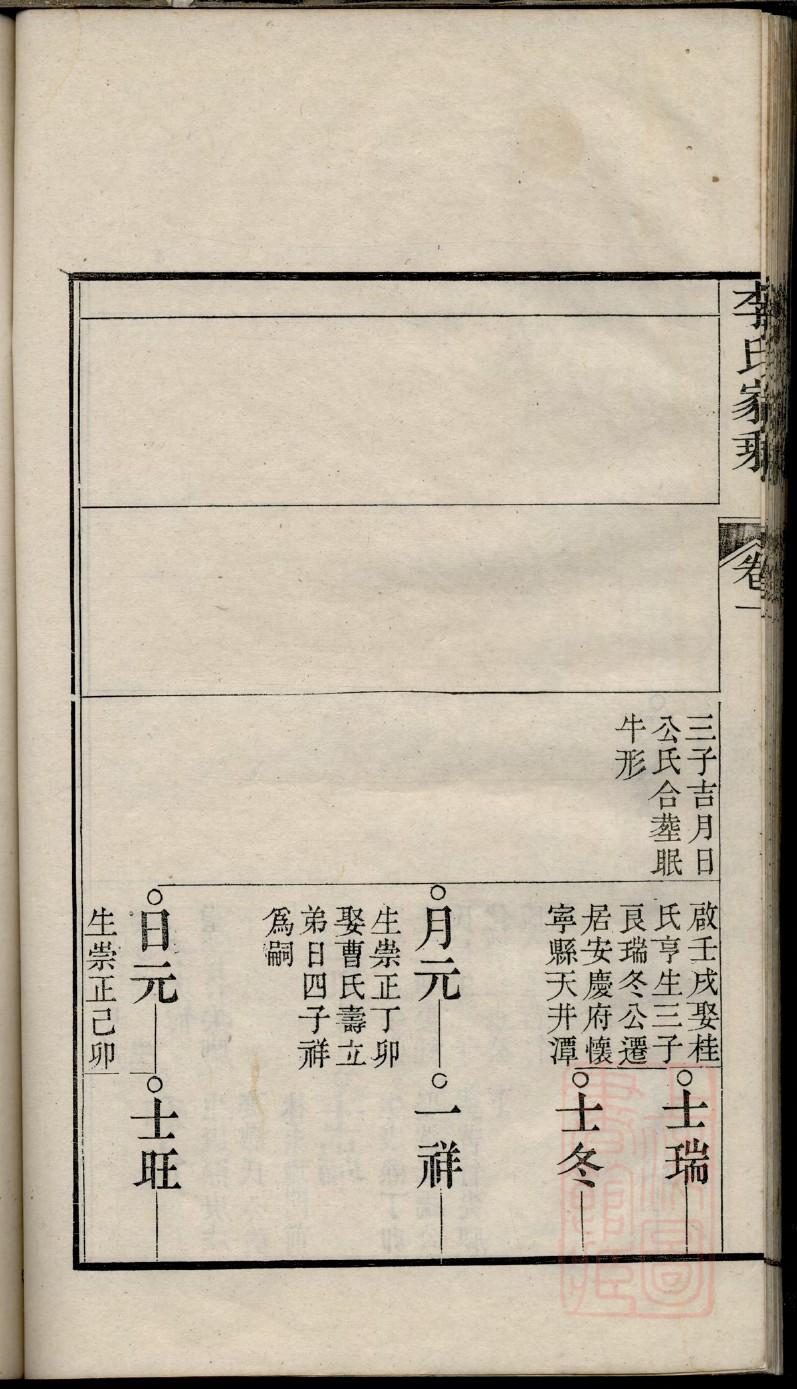 李氏家乘
卷一
三子吉月日
公氏合塟眠
牛形
啟壬戌娶桂
氏亨生三子
良瑞冬公遷
居安慶府懷
寧縣天井潭
士瑞
士冬
月元
生崇正丁卯
娶曹氏壽立
弟日四子祥
爲嗣
一祥
日元
生崇正己卯
士旺